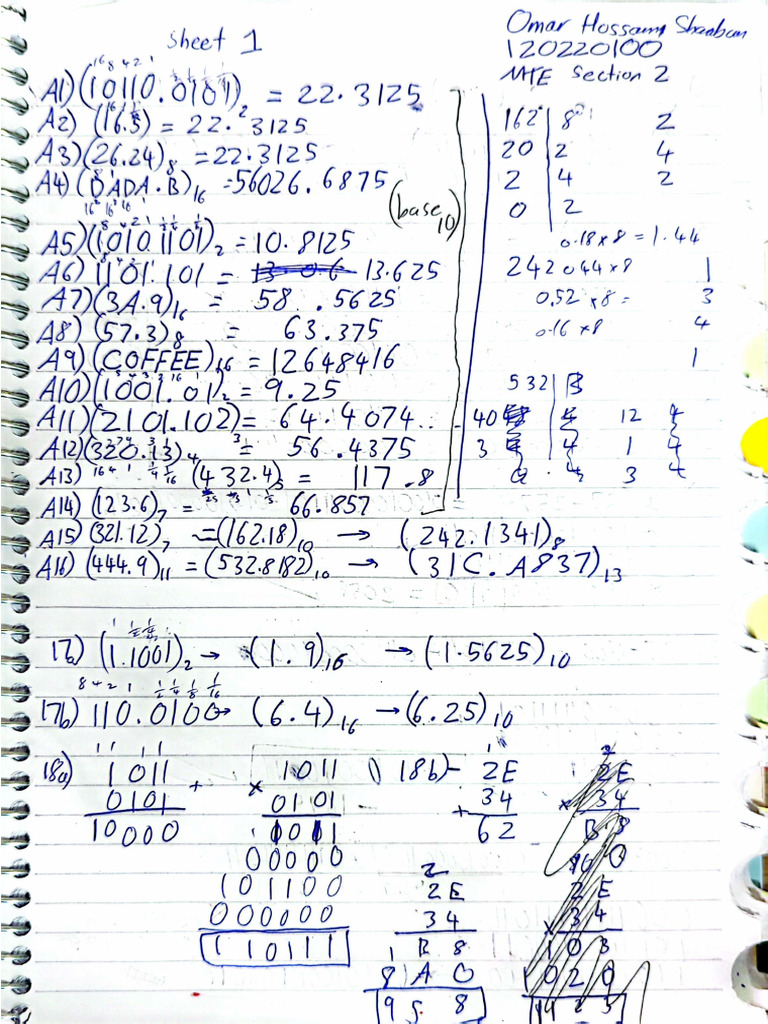 Sheet 1
Omar Hossam Shaaban
120220100
MTE Section 2
16 8 4 2 1
A1) (10110.0101)2 = 22.3125
A2) (16.5) = 22.3125
A3) (26.24)8 = 22.3125
A4) (DADA.B)16 = 56026.6875
(base 10)
A5) (1010.1101)2 = 10.8125
A6) 1101.101 = 13.625
A7) (3A.9)16 = 58.5625
A8) (57.3)8 = 63.375
A9) (COFFEE)16 = 12648416
A10) (1001.01)2 = 9.25
A11) (2101.102)3 = 64.4074..
A12) (320.13)4 = 56.4375
A13) (432.4)5 = 117.8
A14) (123.6)7 = 66.857
A15) (321.12)7 = (162.18)10 → (242.1341)8
A16) (444.9)11 = (532.8182)10 → (31C.A837)13
162 8 2
20 2 4
2 4 2
0 2
0.18×8 = 1.44
242 0.44×8 1
0.52×8 = 3
0.16×8 4
1
532 B
40 12
3 1
3
1 1/2 1/4
17a) (1.1001)2 → (1.9)16 → (-1.5625)10
8 4 2 1 1/2 1/4 1/8 1/16
17b) 110.0100 → (6.4)16 → (6.25)10
18a)
1 1 1 1
1011 +
0101
10000
1011
× 0101
1011
00000
101100
000000
110111
18b)
1
2E
+ 34
62
2
2E
34
1 B 8
8 A 0
9 5 8